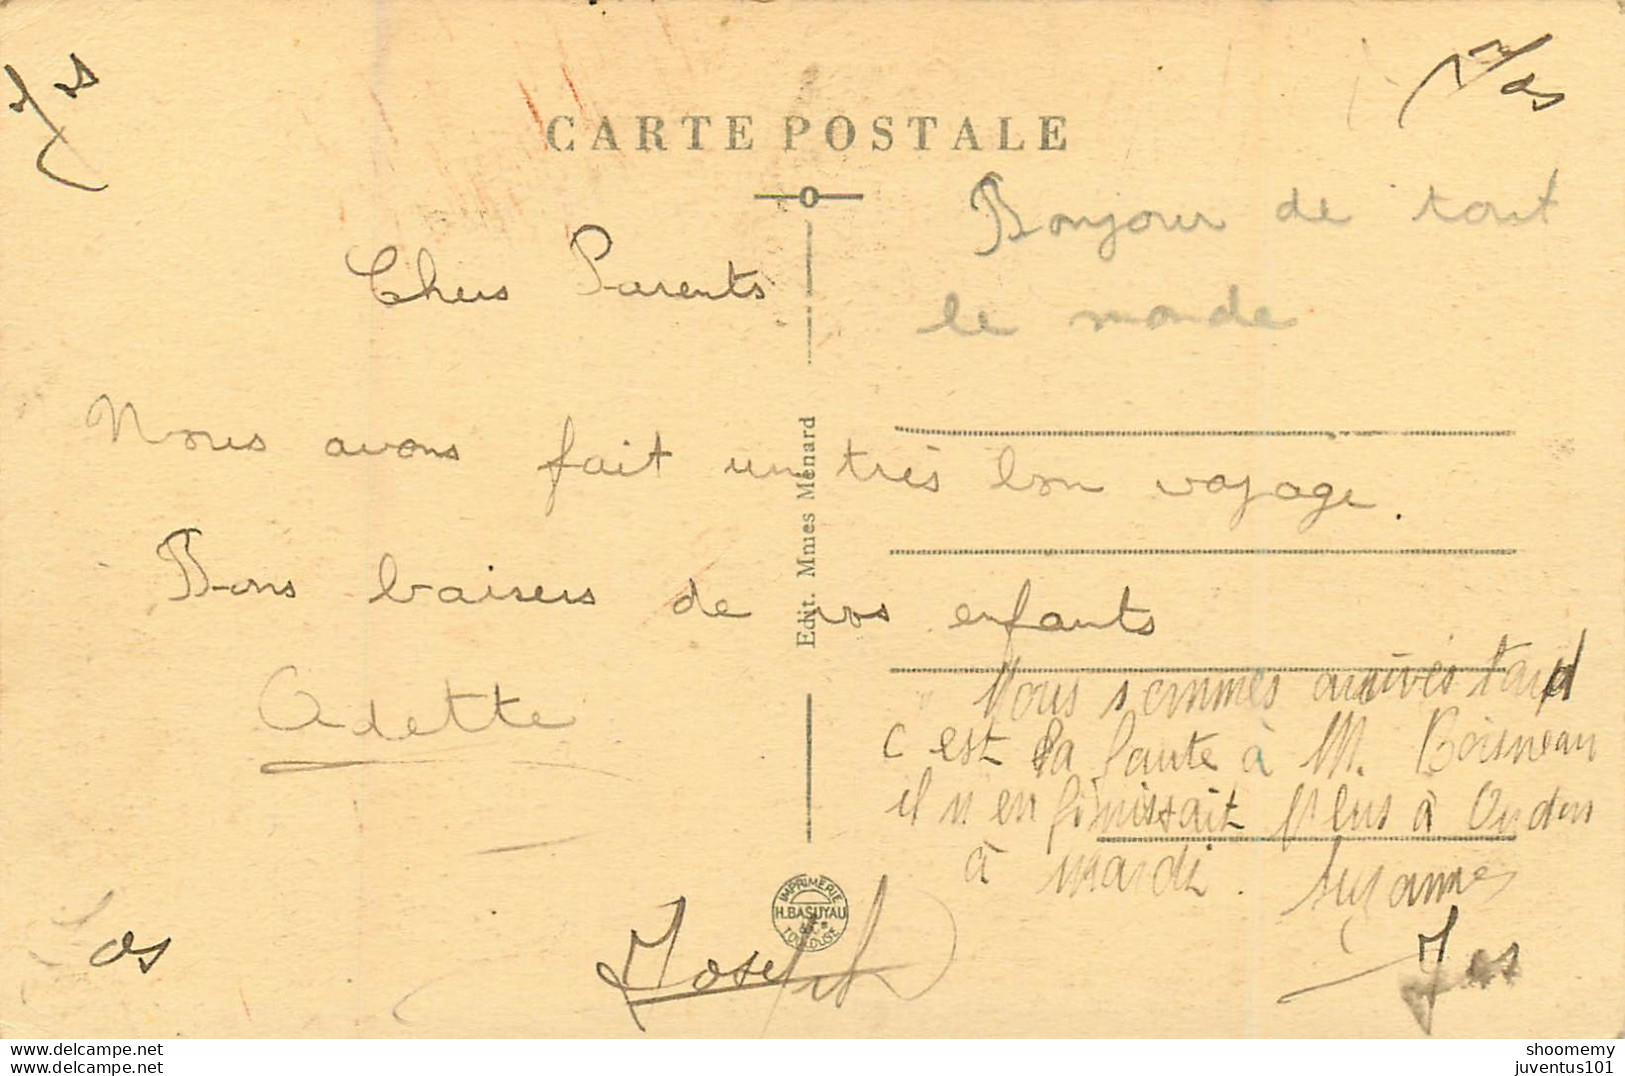 CARTE POSTALE
Jos
Bonjour de tout
le monde
Chers Parents
Nous avons fait un très bon voyage.
Bons baisers de vos enfants
Odette
Edit. Mmes Ménard
Nous sommes arrivés tard
c est la faute à M. Boisneau
il n en finissait plus à
à midi. Suzanne
Joseph
IMPRIMERIE
H.BASUYAU
& Cie
TOULOUSE
Jos
Jos
www.delcampe.net
www.delcampe.net
shoomemy
juventus101